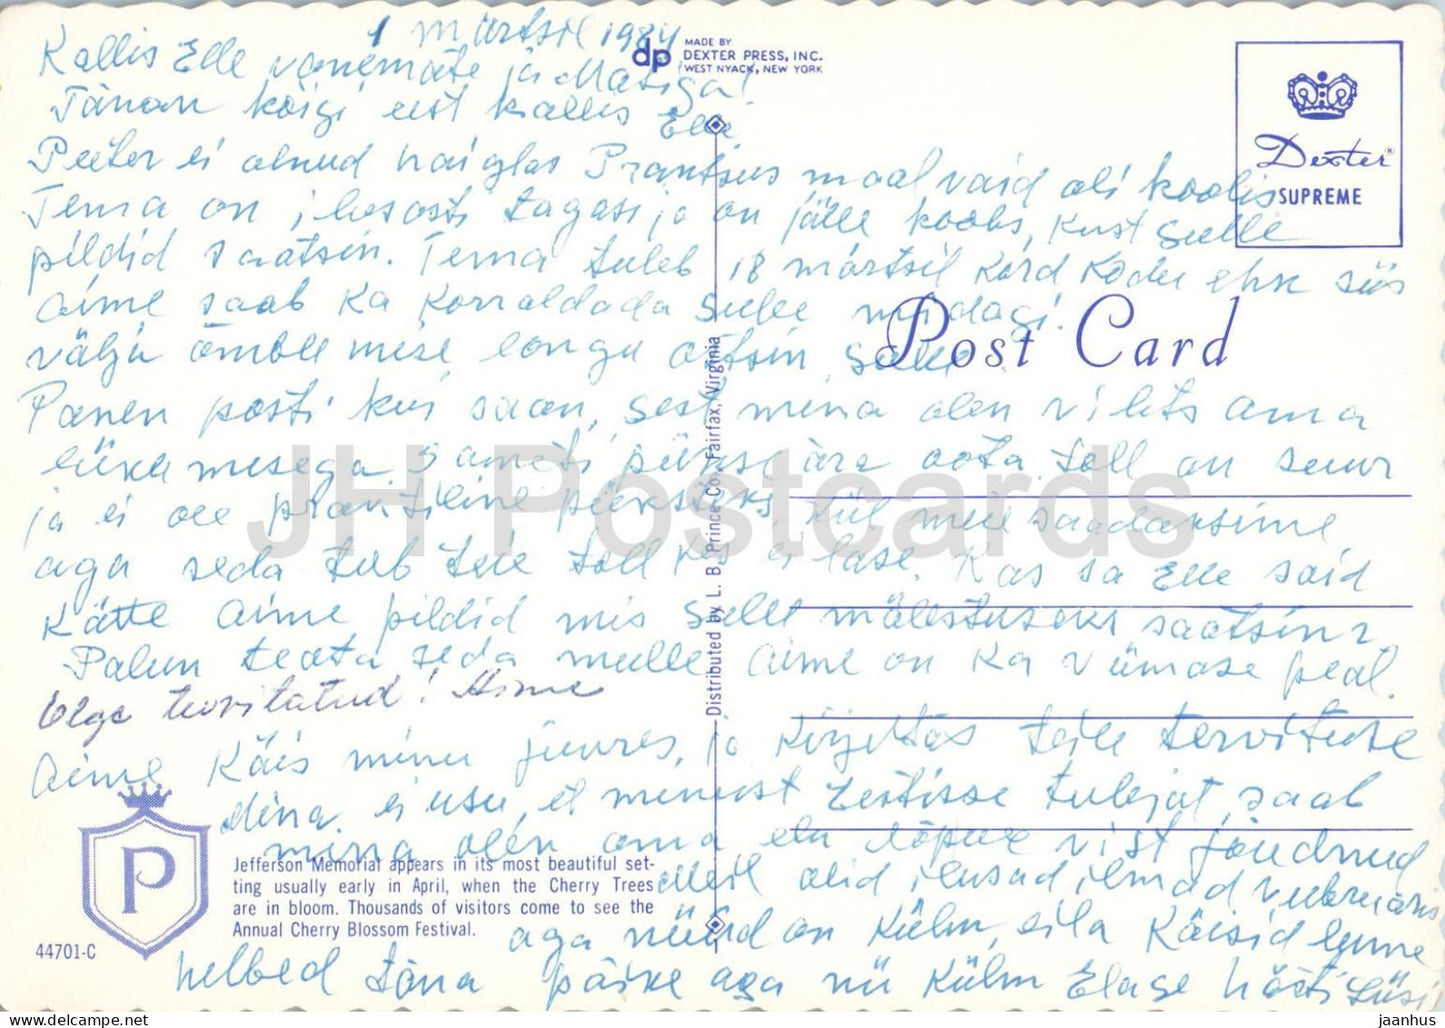 1 märtsil 1984
Kallis Elle vanemate ja Matiga!
Tänan kõigi eest kallis Elle
Peeter ei olnud haiglas Prantsus maal vaid oli koolis
Tema on ilusasti tagasi ja on jälle koolis, kust Sulle
pildid saatsin. Tema tuleb 18 märtsil kord kodu ehk siis
Aime saab ka korraldada Sulle midagi.
välja õmblemise longu otsin Sulle
Panen posti kui saan, sest mina olen vilets oma
liikumisega. ameti püksse ära oota toll on suur
ja ei ole püksteks, küll meie saadaksime
aga seda tuleb teie toll kes ei lase. Kas sa Elle said
Kätte Aime pildid mis Sulle mälestuseks saatsin?
Palun teata seda mulle Aime on ka viimase peal.
Olge tervitatud! Aime
Aime Käis minu juures, ja kirjutas teile tervituse
Mina ei usu, et minust Eestisse tulijat saab
mina olen oma elu lõpule vist jõudnud
Meil olid ilusad ilmad veebruaris
aga nüüd on külm, eila käisid lume
helbed täna päike aga nü külm Elage hästi
MADE BY
dp DEXTER PRESS, INC.
WEST NYACK, NEW YORK
Dexter®
SUPREME
Post Card
Distributed by L. B. Prince Co., Fairfax, Virginia
JH Postcards
P
Jefferson Memorial appears in its most beautiful set-
ting usually early in April, when the Cherry Trees
are in bloom. Thousands of visitors come to see the
Annual Cherry Blossom Festival.
44701-C
jaanhus